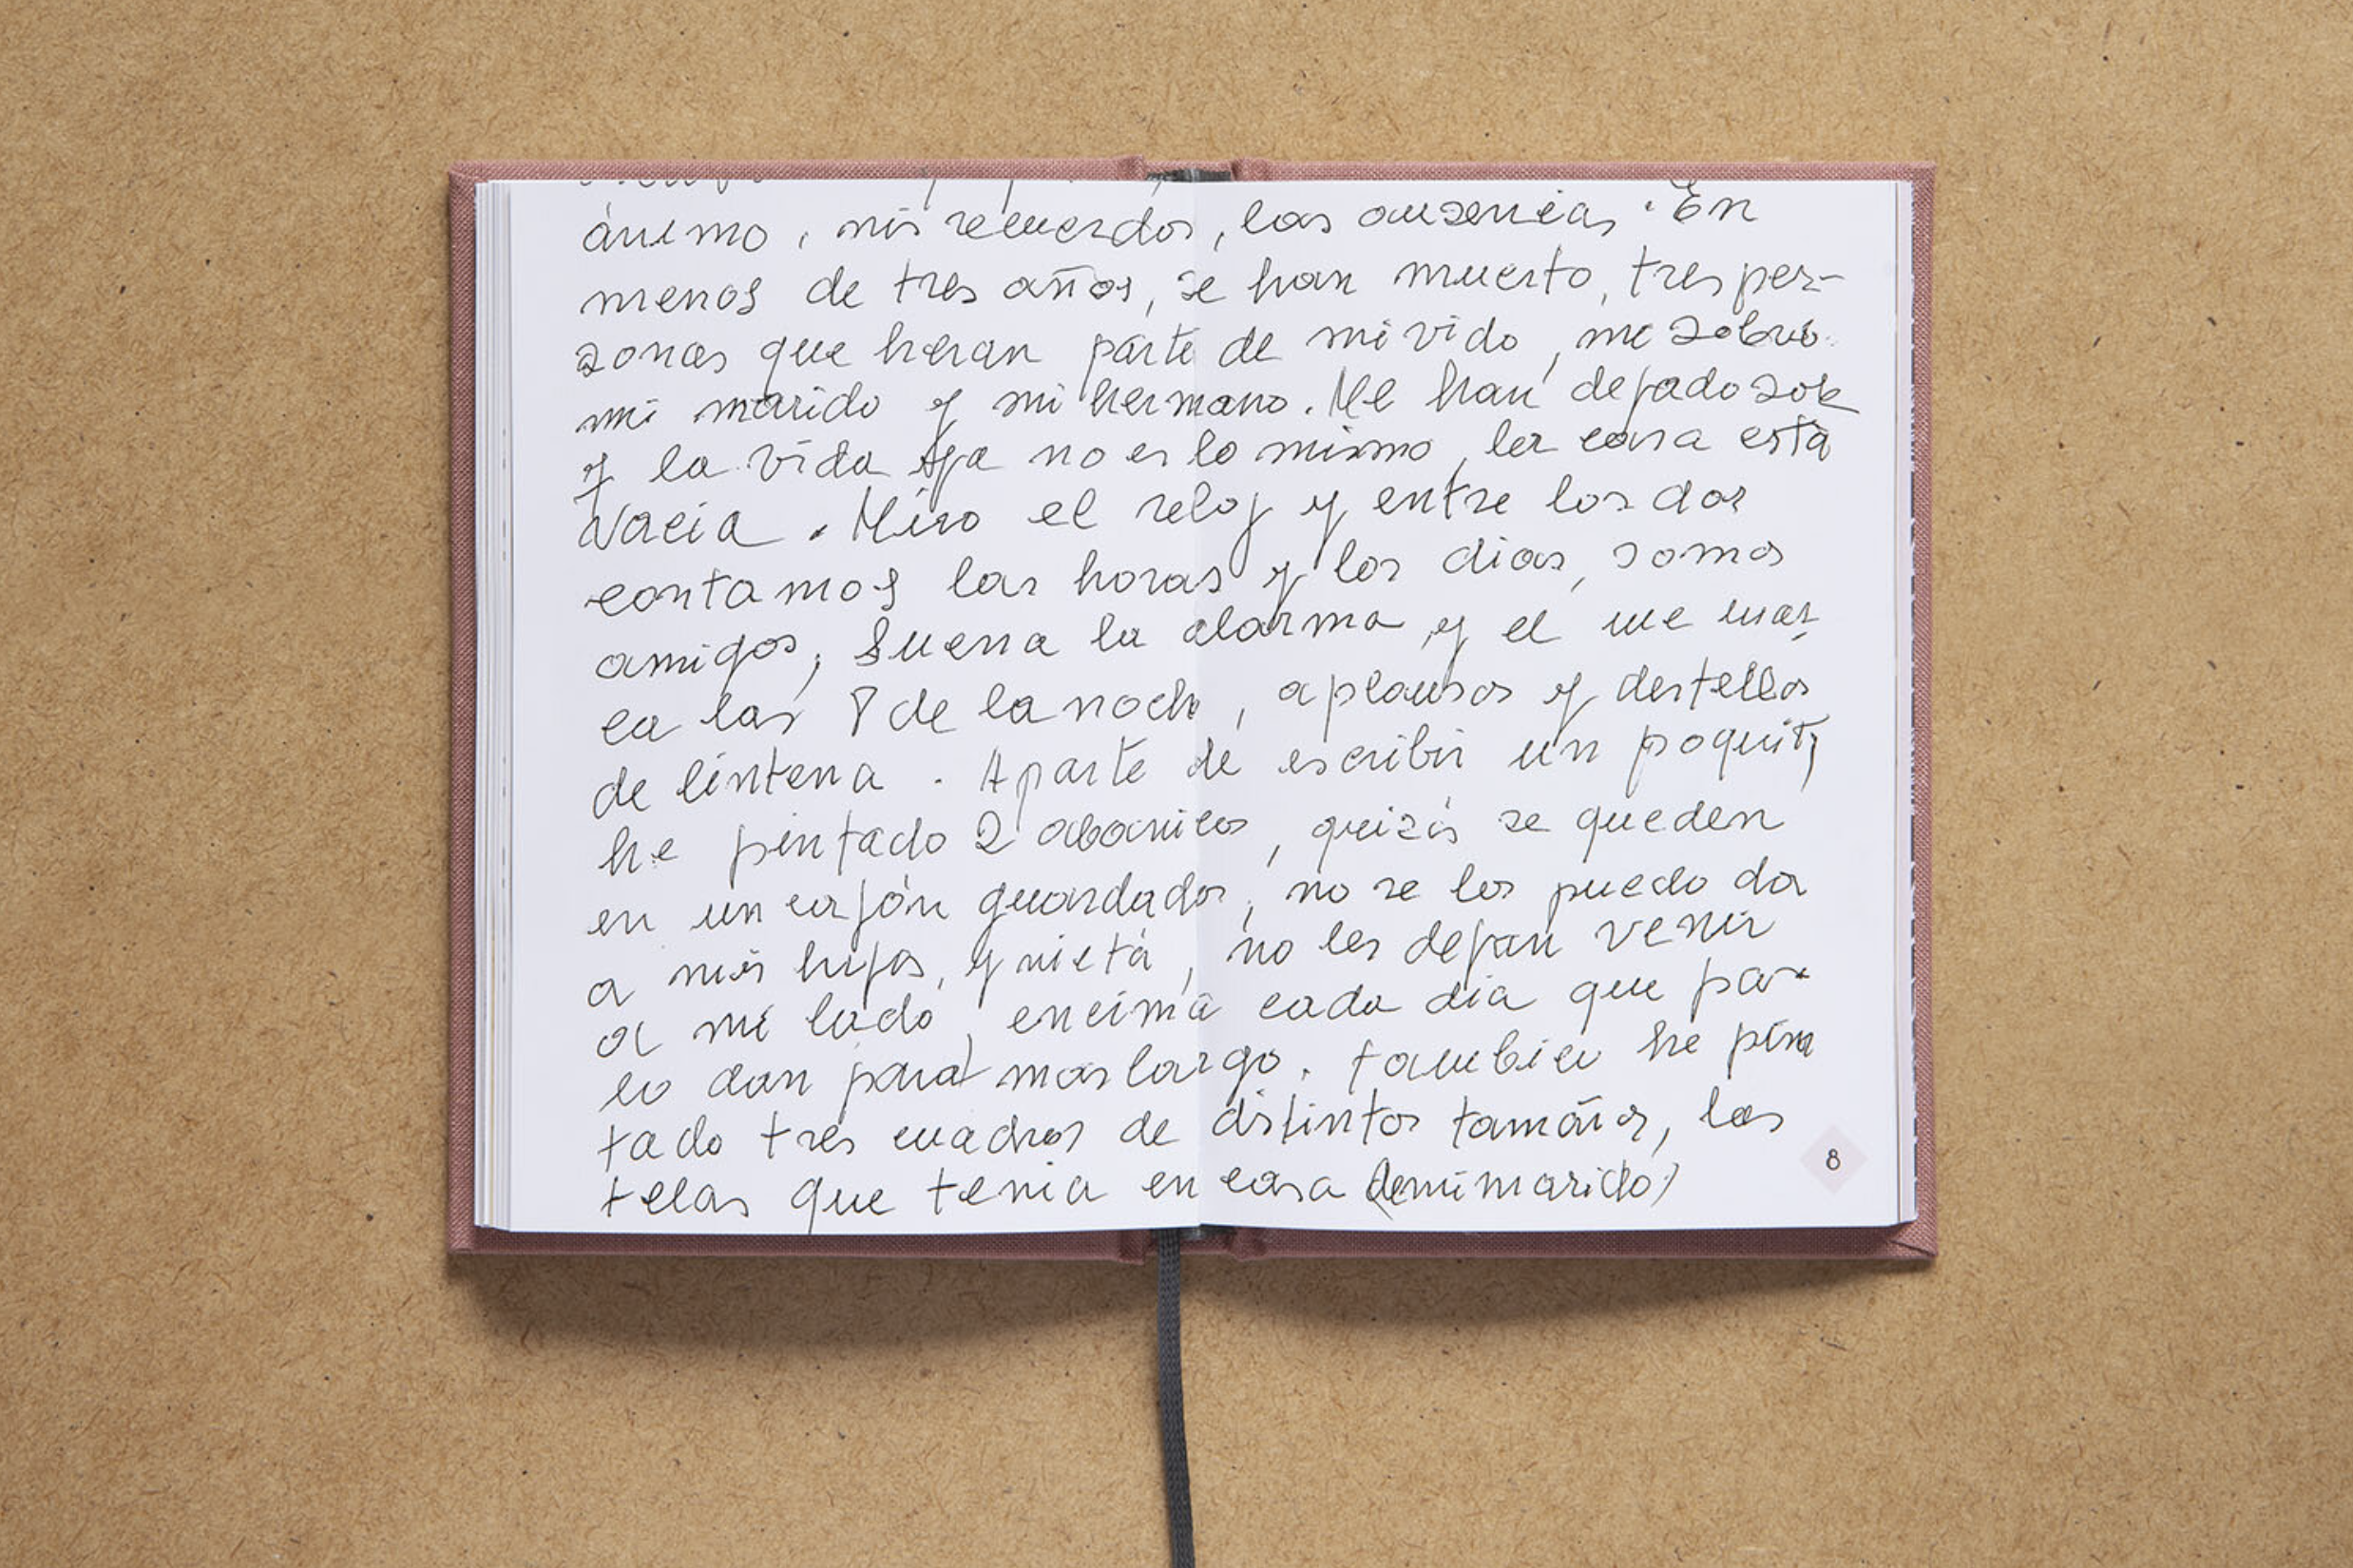 ánimo, mis recuerdos, las ausencias. En
menos de tres años, se han muerto, tres per-
sonas que heran parte de mi vida, mi
mi marido y mi hermano. Me han dejado sola
y la vida ya no es lo mismo, la casa está
vacia. Miro el reloj y entre los dos
contamos las horas y los dias, somos
amigos, suena la alarma y el me mar
ca las 8 de la noche, aplausos y destellos
de lintena. Aparte de escribir un poquito,
he pintado 2 abanicos, quizás se queden
en un cajón guardados, no se los puedo da
a mis hijos, y nietá, no les dejan venir
a mi lado, encima cada dia que pa-
so dan para mas largo. tambien he pin
tado tres cuadros de distintos tamaños, las
telas que tenia en casa (de mi marido)
8